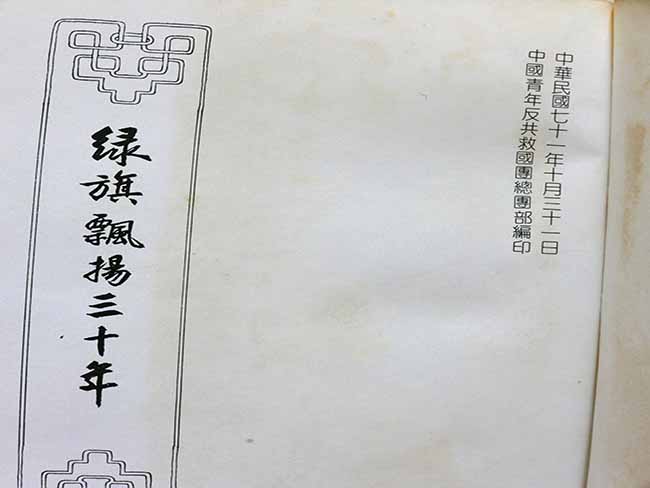 中華民國七十一年十月三十一日
中國青年反共救國團總團部編印
綠旗飄揚三十年